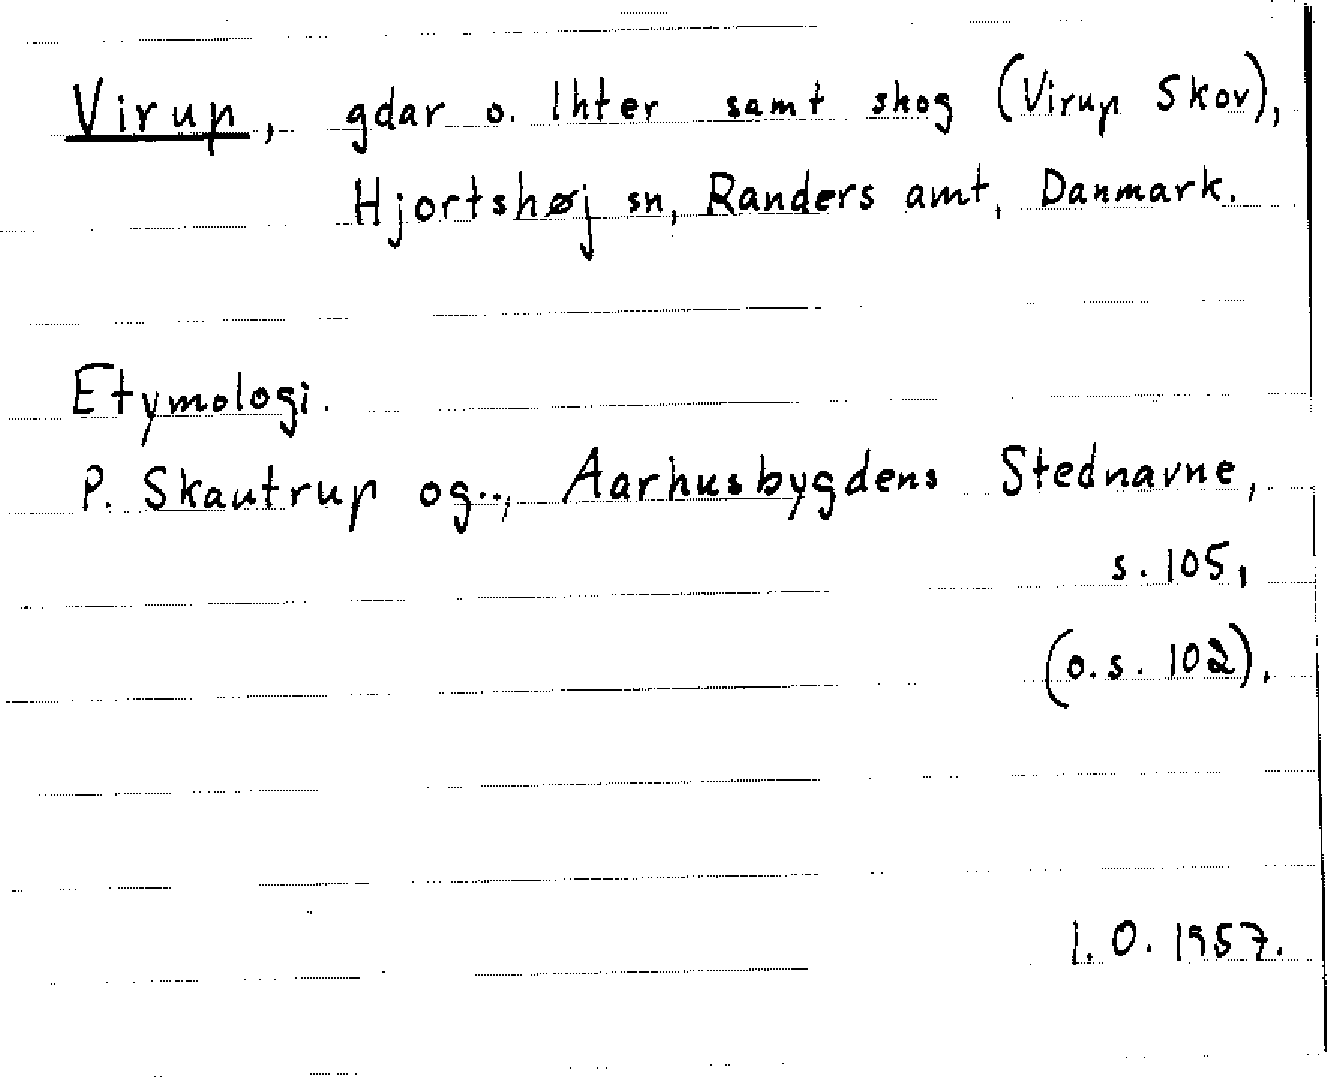 Virup, gdar o. lhter samt skog (Virup Skov),
Hjortshøj sn, Randers amt, Danmark.
Etymologi.
P. Skautrup og.., Aarhusbygdens Stednavne,
s. 105,
(o. s. 102).
I. O. 1957.